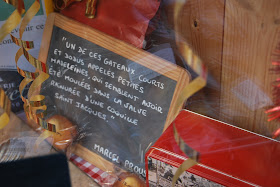 "UN DE CES GATEAUX COURTS
ET DODUS APPELÉS PETITES
MADELEINES, QUI SEMBLENT AVOIR
ÉTÉ MOULÉS DANS LA VALVE
RAINURÉE D'UNE COQUILLE
SAINT JACQUES"
MARCEL PROUS